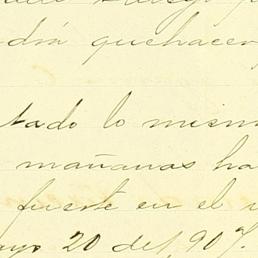 quehacer
tado lo mism
mañanas ha
fuerte en el
ayo 20 del 907.